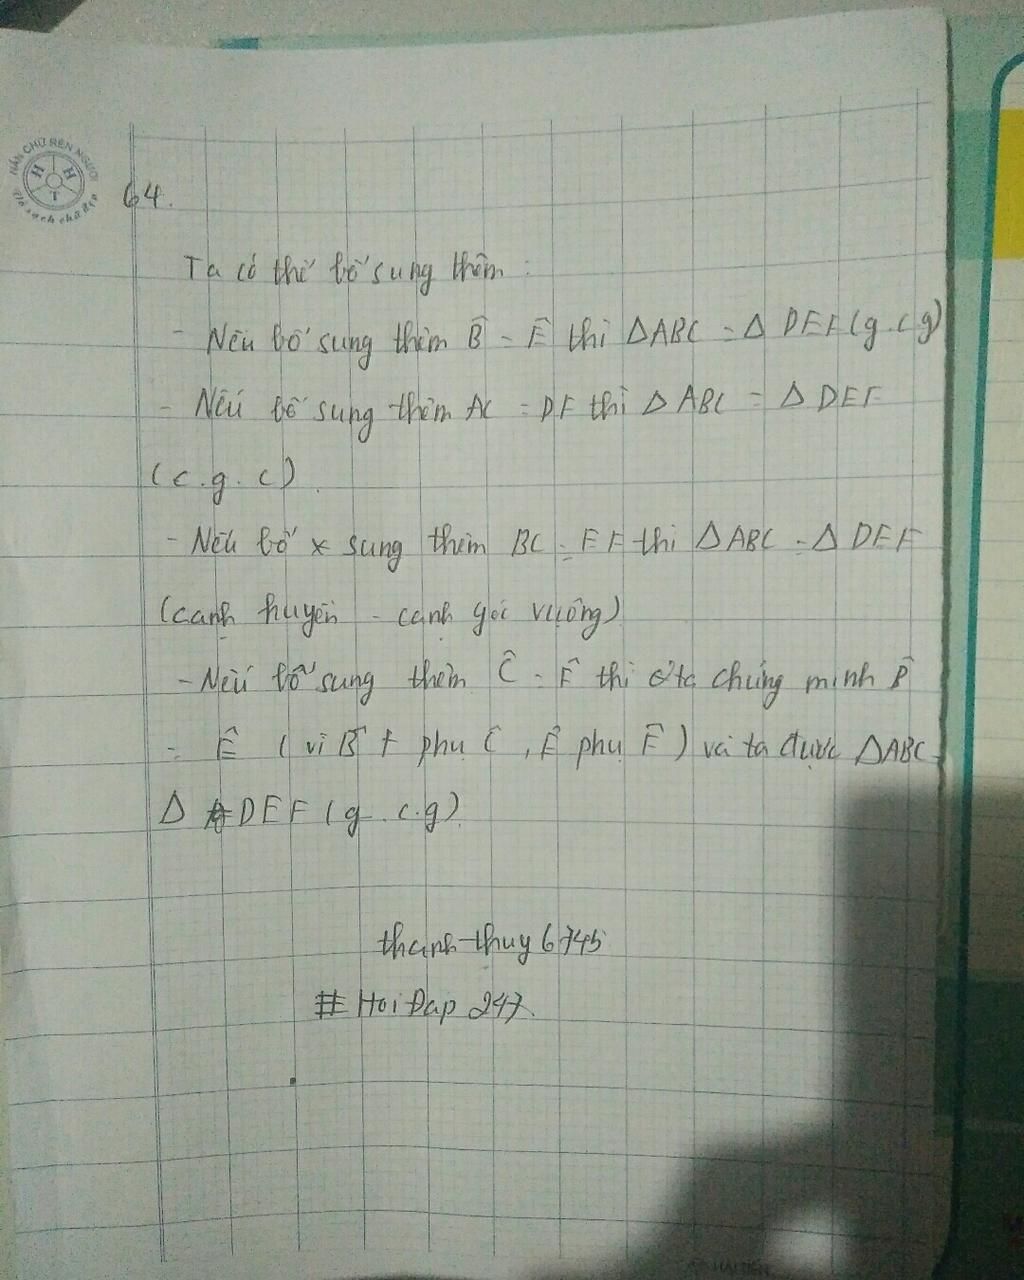 NẮN CHỮ RÈN NGƯỜI
H H T
Vở sạch chữ đẹp
64.
Ta có thể bổ sung thêm :
- Nếu bổ sung thêm B̂ = Ê thì ΔABC = Δ DEF (g.c.g)
- Nếu bổ sung thêm AC = DF thì Δ ABC = Δ DEF
(c.g.c)
- Nếu bổ sung thêm BC = EF thì ΔABC = Δ DEF
(cạnh huyền - cạnh góc vuông)
- Nếu bổ sung thêm Ĉ = F̂ thì ta chứng minh B̂
= Ê ( vì B̂ phụ Ĉ , Ê phụ F̂ ) và ta được ΔABC
Δ DEF (g.c.g)
thanhthuy6745
# HoiDap 247.